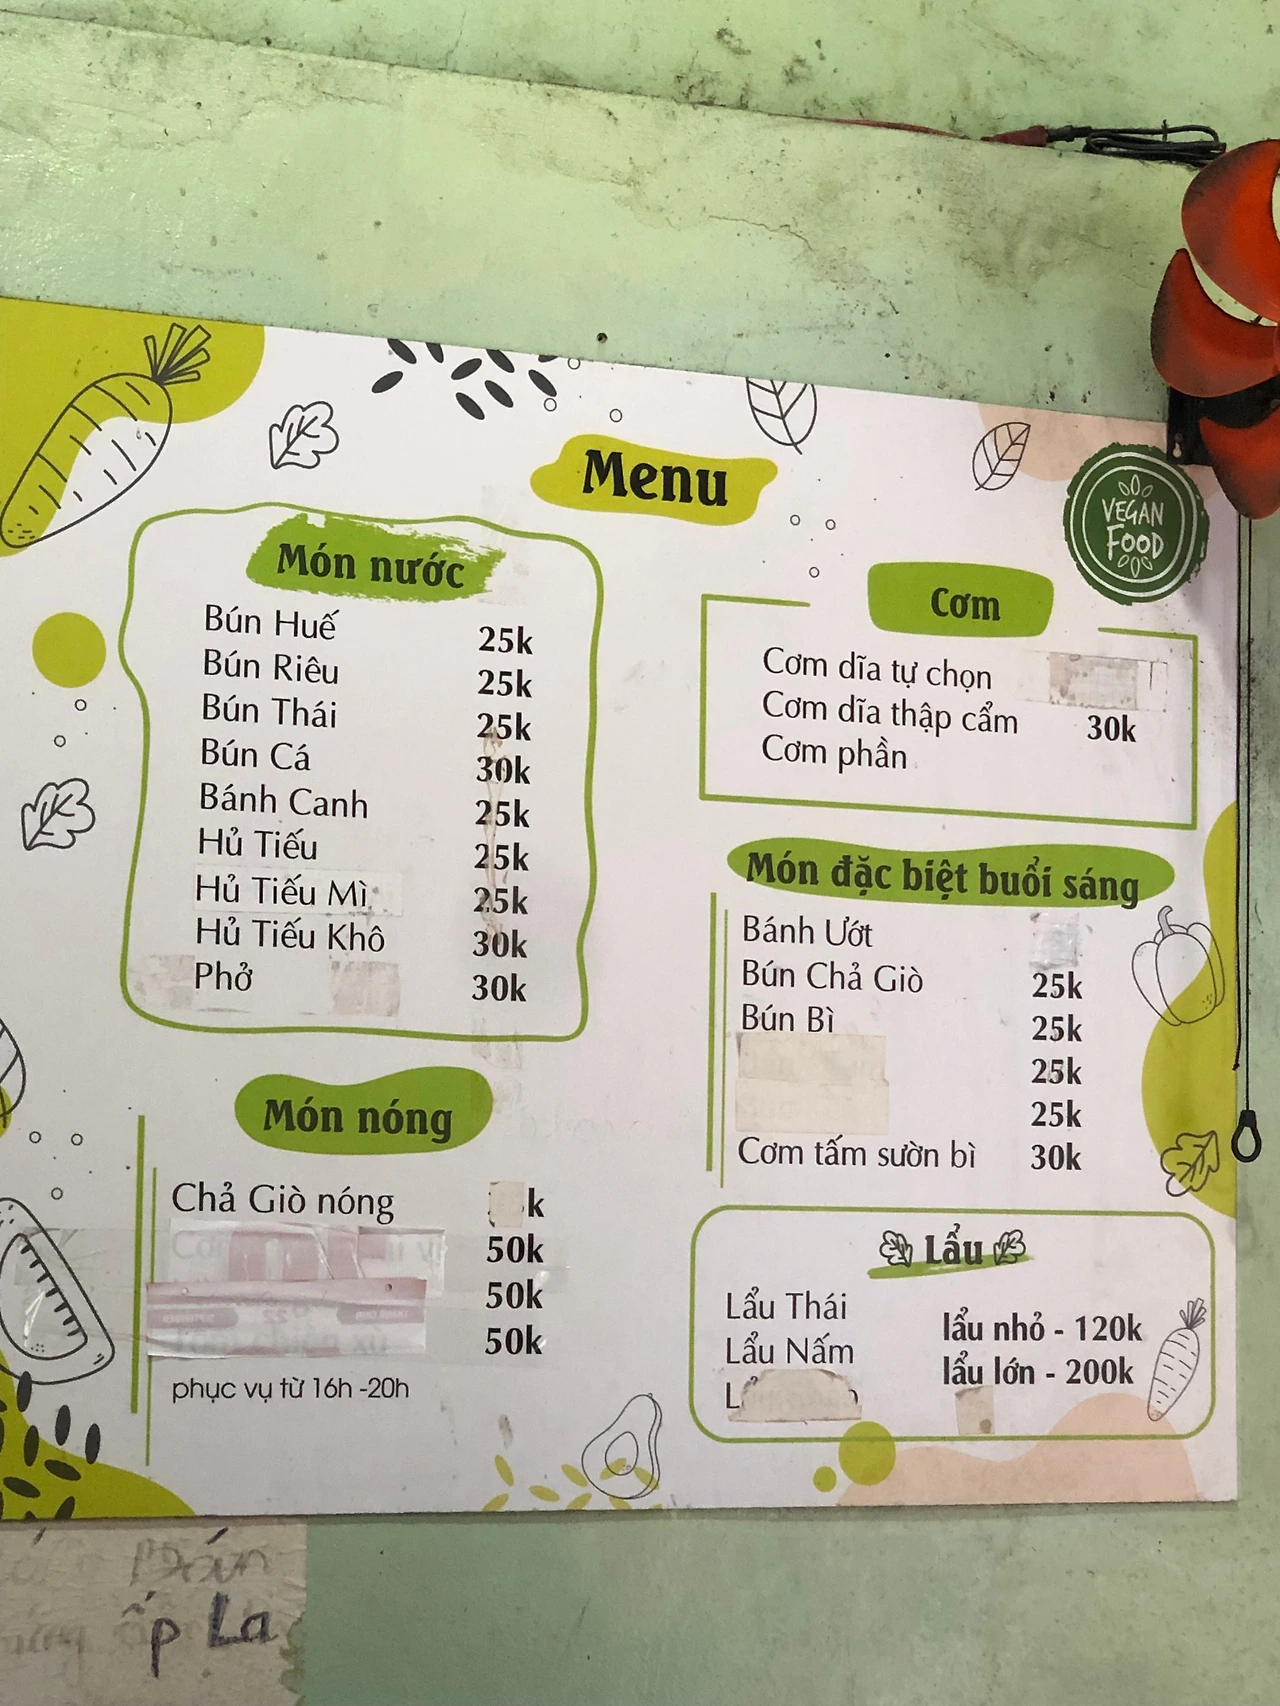 Menu
VEGAN
FOOD
Món nước
Bún Huế 25k
Bún Riêu 25k
Bún Thái 25k
Bún Cá 30k
Bánh Canh 25k
Hủ Tiếu 25k
Hủ Tiếu Mì 25k
Hủ Tiếu Khô 30k
Phở 30k
Món nóng
Chả Giò nóng k
50k
50k
50k
phục vụ từ 16h -20h
Cơm
Cơm dĩa tự chọn
Cơm dĩa thập cẩm 30k
Cơm phần
Món đặc biệt buổi sáng
Bánh Ướt
Bún Chả Giò 25k
Bún Bì 25k
25k
25k
Cơm tấm sườn bì 30k
Lẩu
Lẩu Thái lẩu nhỏ - 120k
Lẩu Nấm lẩu lớn - 200k
ấp La